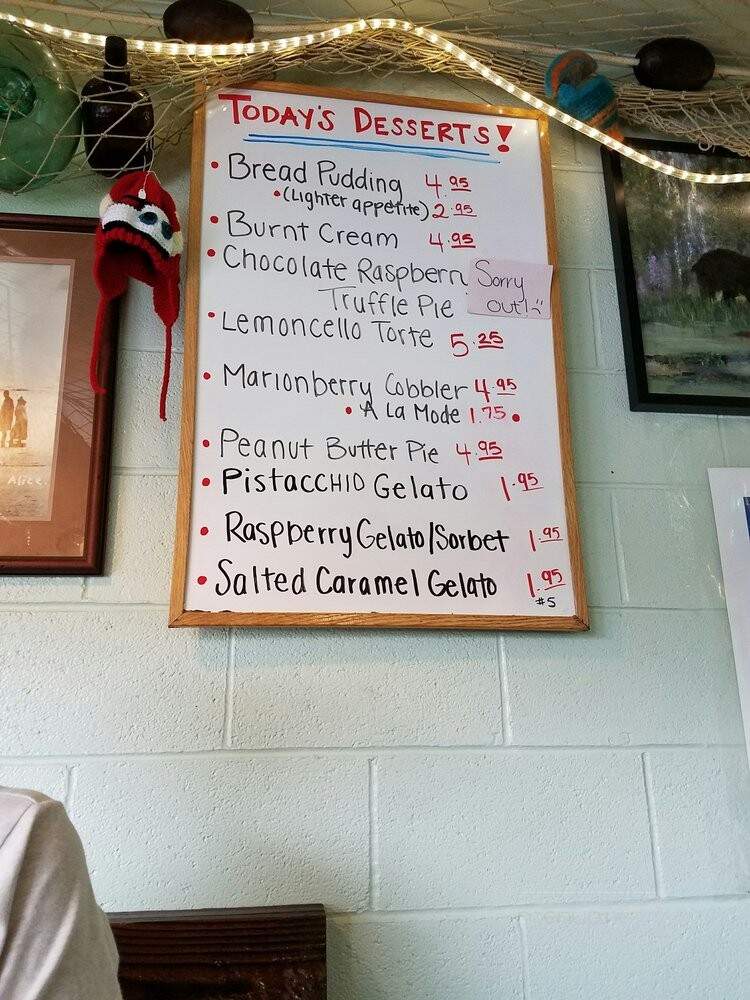 TODAY'S DESSERTS!
• Bread Pudding 4.95
• (Lighter appetite) 2.95
• Burnt Cream 4.95
• Chocolate Raspberry
Truffle Pie
Sorry
out!
• Lemoncello Torte 5.25
• Marionberry Cobbler 4.95
• A La Mode 1.75 •
• Peanut Butter Pie 4.95
• Pistacchio Gelato 1.95
• Raspberry Gelato/Sorbet 1.95
• Salted Caramel Gelato 1.95
#5
Alice.